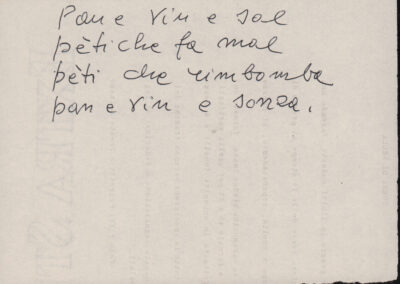 Pan e vin e sal
pèti che fa mal
pèti che rimbomba
pan e vin e sonza.